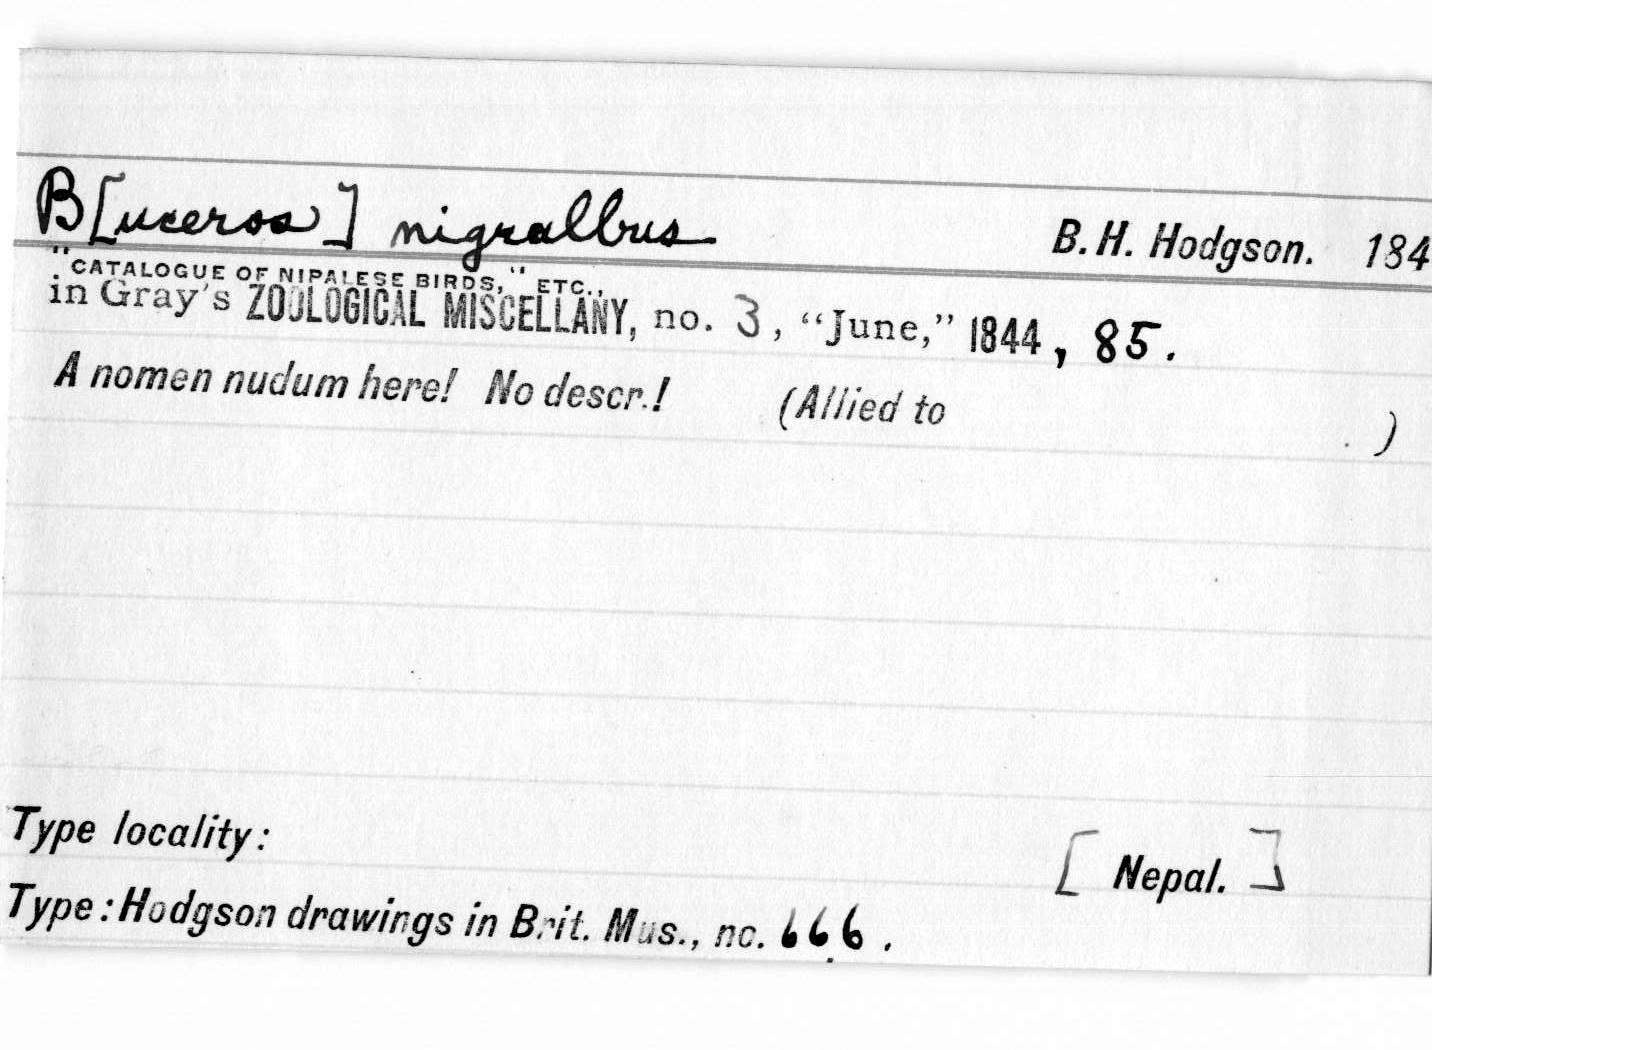 B[uceros] nigralbus B. H. Hodgson. 184
"CATALOGUE OF NIPALESE BIRDS," ETC.,
in Gray's ZOOLOGICAL MISCELLANY, no. 3, "June," 1844, 85.
A nomen nudum here! No descr.! (Allied to . )
Type locality: [ Nepal. ]
Type: Hodgson drawings in Brit. Mus., no. 666.